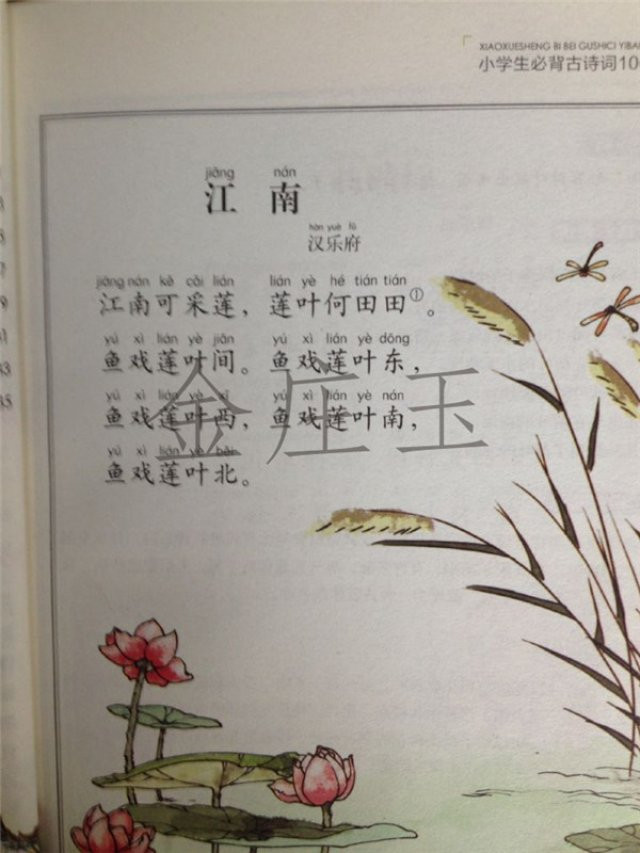 XIAOXUESHENG BI BEI GUSHICI YIBAI
小学生必背古诗词10
jiāng nán
江 南
hàn yuè fǔ
汉乐府
jiāng nán kě cǎi lián lián yè hé tián tián
江南可采莲，莲叶何田田①。
yú xì lián yè jiān yú xì lián yè dōng
鱼戏莲叶间。鱼戏莲叶东，
yú xì lián yè xī yú xì lián yè nán
鱼戏莲叶西，鱼戏莲叶南，
yú xì lián yè běi
鱼戏莲叶北。
金庄玉